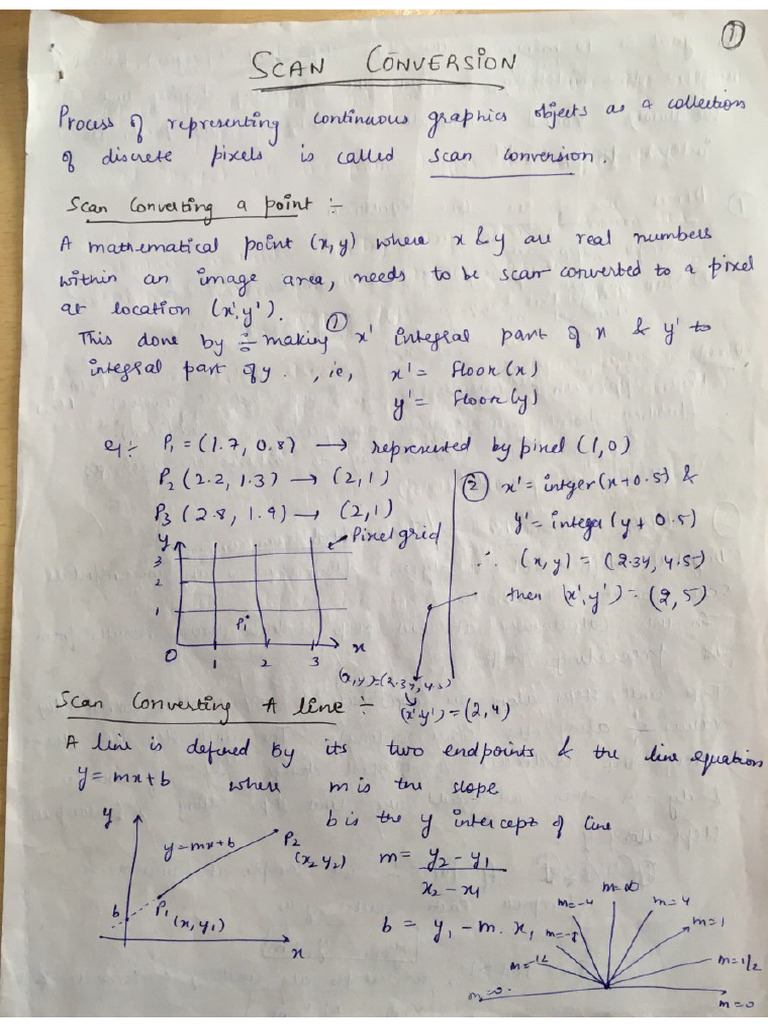 ①
SCAN CONVERSION
Process of representing continuous graphics objects as a collection
of discrete pixels is called scan conversion.
Scan Converting a point :-
A mathematical point (x, y) where x & y are real numbers
within an image area, needs to be scan converted to a pixel
at location (x', y').
This done by :- making ① x' integral part of x & y' to
integral part of y. , ie, x' = floor(x)
y' = floor(y)
eg :- P1 = (1.7, 0.8) → represented by pixel (1,0)
P2 (2.2, 1.3) → (2,1)
P3 (2.8, 1.9) → (2,1)
② x' = integer(x+0.5) &
y' = intega(y+0.5)
∴ (x,y) = (2.34, 4.5)
then (x',y') = (2,5)
y
Pixel grid
3
2
1
P1
0 1 2 3 x
(x,y)=(2.37, 4.5)
(x'y') = (2,4)
Scan Converting A line :-
A line is defined by its two endpoints & the line equation
y = mx+b where m is the slope
b is the y intercept of line
y
y=mx+b
P2
(x2 y2)
P1
(x, y1)
b
x
m = y2 - y1
x2 - x1
b = y1 - m. x1
m=∞
m=-4
m=4
m=1
m=1/2
m=0.
m=0